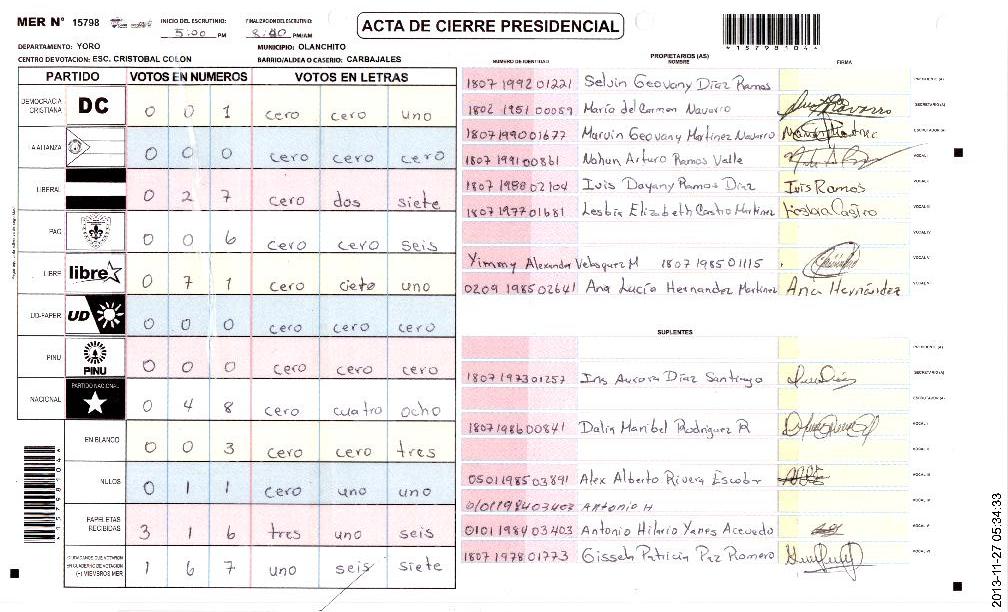 MER N° 15798
INICIO DEL ESCRUTINIO: 5:00 PM
FINALIZACION DEL ESCRUTINIO: 8:40 PM/AM
ACTA DE CIERRE PRESIDENCIAL
*1579810 4*
DEPARTAMENTO: YORO
MUNICIPIO: OLANCHITO
CENTRO DE VOTACION: ESC. CRISTOBAL COLON
BARRIO/ALDEA O CASERIO: CARBAJALES
PARTIDO VOTOS EN NUMEROS VOTOS EN LETRAS
DEMOCRACIA CRISTIANA DC 0 0 1 cero cero uno
LA ALIANZA 0 0 0 cero cero cero
LIBERAL 0 2 7 cero dos siete
PAC 0 0 6 cero cero seis
LIBRE libre 0 7 1 cero ciete uno
UD-FAPER UD 0 0 0 cero cero cero
PINU PINU 0 0 0 cero cero cero
NACIONAL PARTIDO NACIONAL 0 4 8 cero cuatro ocho
EN BLANCO 0 0 3 cero cero tres
NULOS 0 1 1 cero uno uno
PAPELETAS RECIBIDAS 3 1 6 tres uno seis
CIUDADANOS QUE VOTARON
EN CUADERNO DE VOTACION
(+) MIEMBROS MER 1 6 7 uno seis siete
PROPIETARIOS (AS)
NUMERO DE IDENTIDAD NOMBRE FIRMA
1807 1992 01221 Selvin Geovany Díaz Ramos PRESIDENTE (A)
1802 1951 00089 María del Carmen Navarro SECRETARIO (A)
1807 1990 01677 Marvin Geovany Martinez Navarro ESCRUTADOR (A)
1807 1991 00861 Nohun Arturo Ramos Valle VOCAL I
1807 1988 02104 Ivis Dayany Ramos Díaz Ivis Ramos VOCAL II
1807 1977 01681 Lesbia Elizabeth Castro Martinez Lesbia Castro VOCAL III
VOCAL IV
Yimmy Alexander Velasquez M 1807 1985 01115 VOCAL V
0209 1985 02641 Ana Lucía Hernandez Martinez Ana Hernández VOCAL VI
SUPLENTES
PRESIDENTE (A)
1807 1973 01257 Iris Aurora Díaz Santiago SECRETARIO (A)
ESCRUTADOR (A)
1807 1986 00841 Dalin Maribel Rodriguez R VOCAL I
VOCAL II
0501 1985 03891 Alex Alberto Rivera Escobar VOCAL III
0101 1984 03403 Antonio H
0101 1984 03403 Antonio Hilario Yanes Acevedo VOCAL V
1807 1978 01773 Gisseh Patricia Paz Romero VOCAL VI
2013-11-27 05:34:33